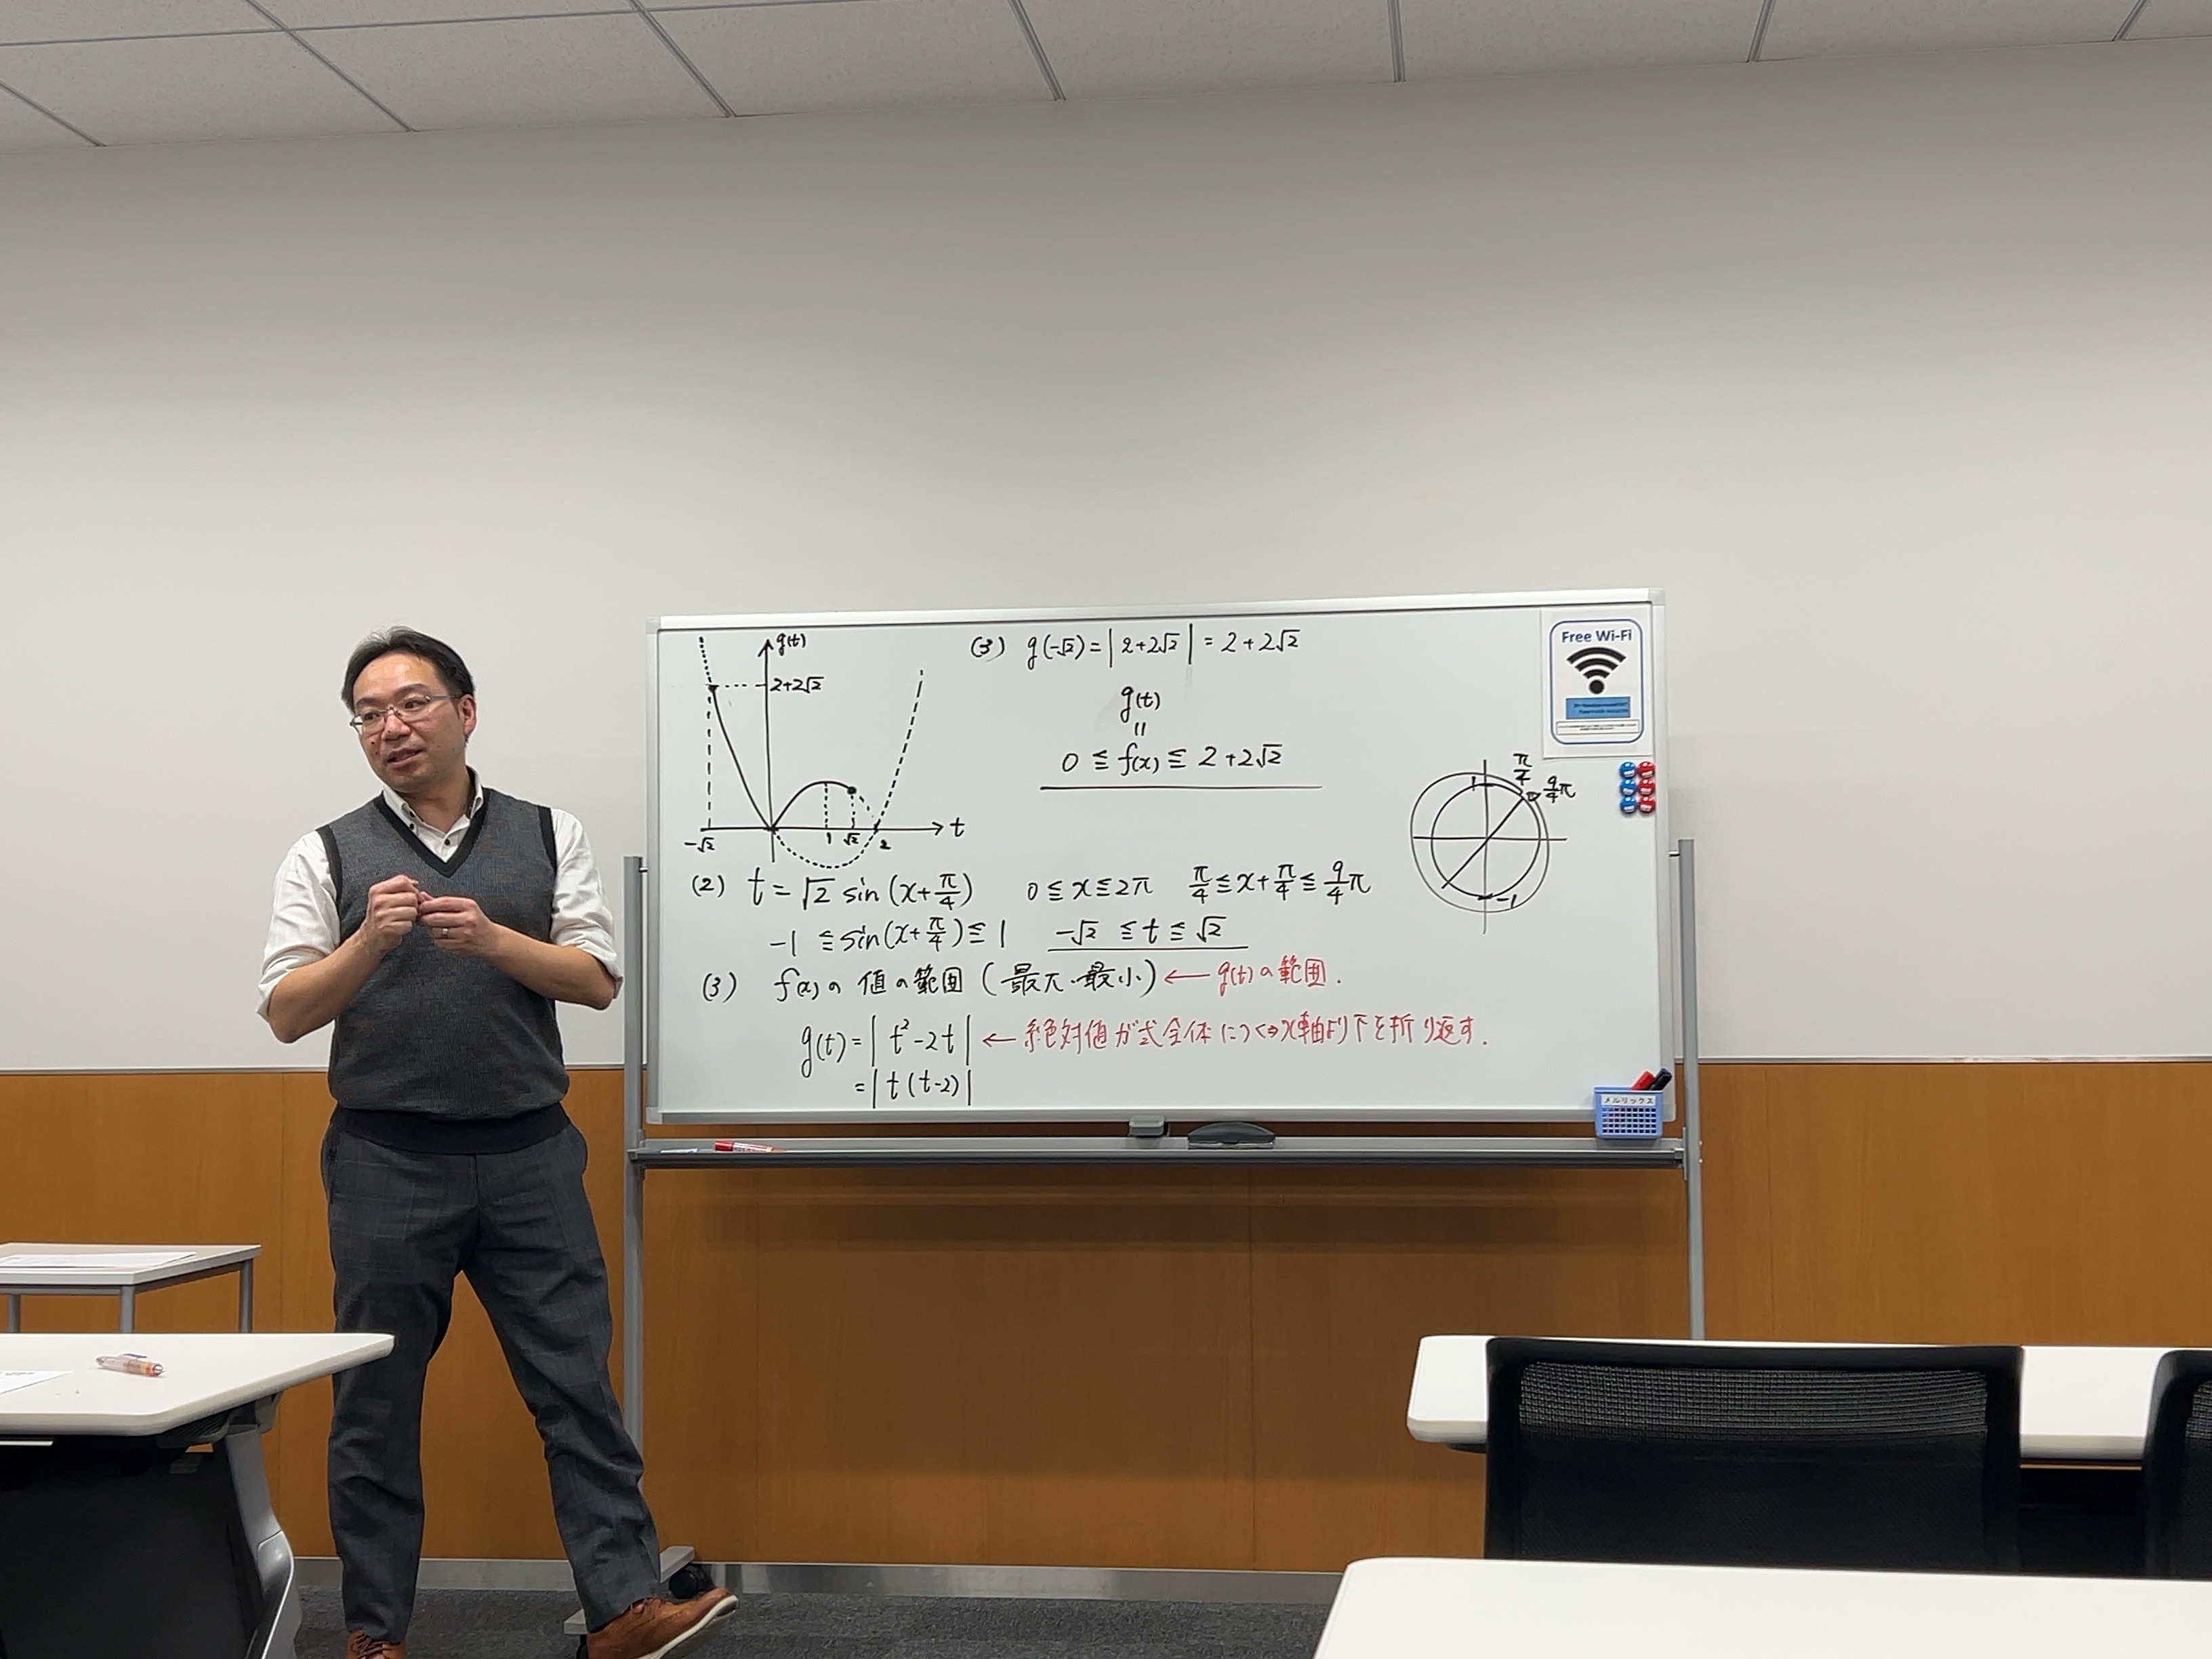 g(t)
2+2√2
-√2
1
√2
2
t
(3) g(-√2)=|2+2√2|=2+2√2
g(t)
=
0≦f(x)≦2+2√2
Free Wi-Fi
π/4
9/4π
1
-1
(2) t=√2 sin(x+π/4) 0≦x≦2π π/4≦x+π/4≦9/4π
-1≦sin(x+π/4)≦1 -√2≦t≦√2
(3) f(x)の値の範囲(最大・最小)←g(t)の範囲.
g(t)=|t²-2t|←絶対値が式全体につく⇒x軸より下を折り返す.
=|t(t-2)|
メルリックス